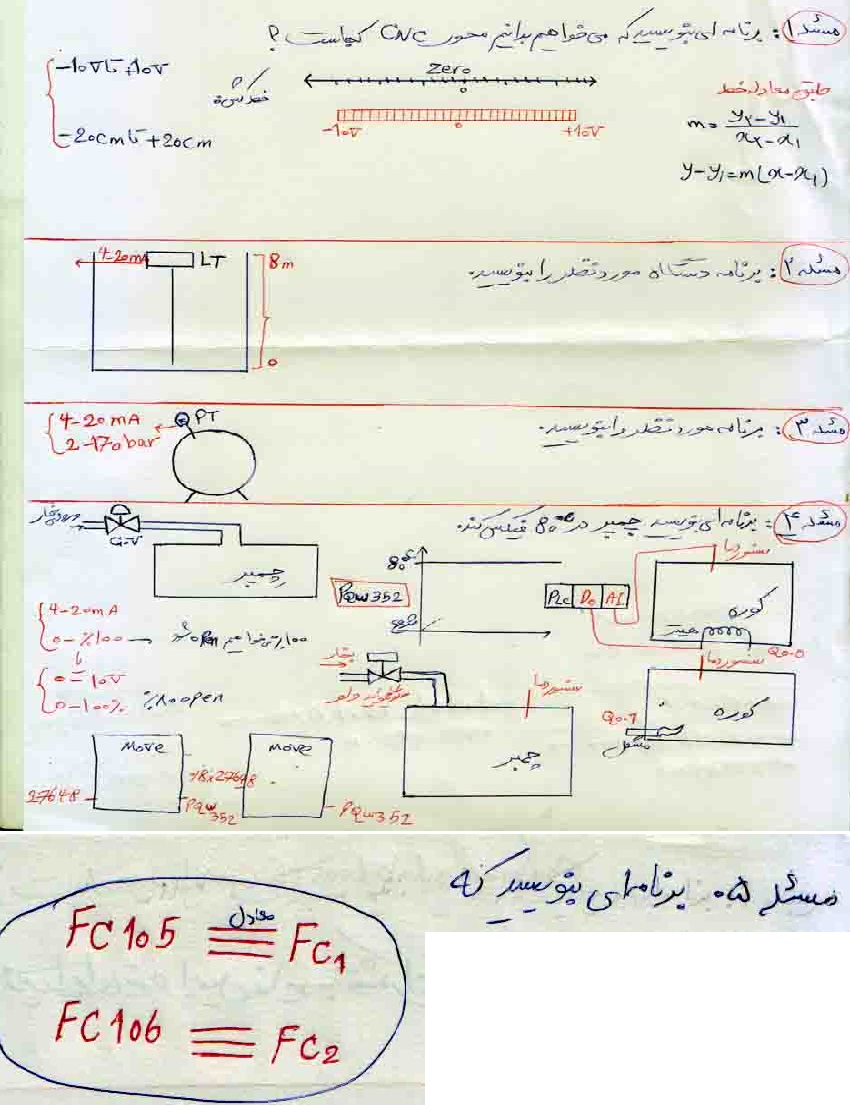 مسئله ۱: برنامه ای بنویسید که می خواهیم بدانیم محور CNC کجاست ؟
-10V تا +10V
-20cm تا +20cm
خط کش
Zero
0
-10V 0 +10V
طبق معادله خط
m = (y₂ - y₁) / (x₂ - x₁)
y - y₁ = m(x - x₁)
مسئله ۲: برنامه دستگاه مورد نظر را بنویسید.
4-20mA LT 8m
0
مسئله ۳: برنامه مورد نظر را بنویسید.
4-20 mA
2-170 bar
PT
مسئله ۴: برنامه ای بنویسید چمبر در 80° فیکس کند.
ورودی بخار
C.V
چمبر
80°
PQW352
PLC DO AI
سنسور دما
کوره
هیتر
Q0.0
4-20mA
0-%100
یا
0 - 10V
0-100%
%80 open
بخار
سنسور دما
چمبر
سنسور دما
کوره
Q0.7
مشعل
Move
27648
PQW352
Move
PQW352
مسئله ۵. برنامه ای بنویسید که
FC105 معادل ≡ FC1
FC106 ≡ FC2